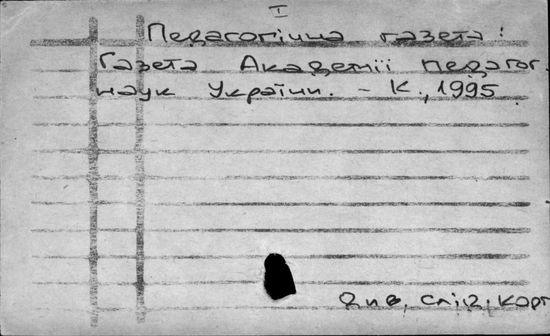 I
Педагогічна газета:
Газета Академії педагог.
наук України. – К., 1995
Див. слід. карт